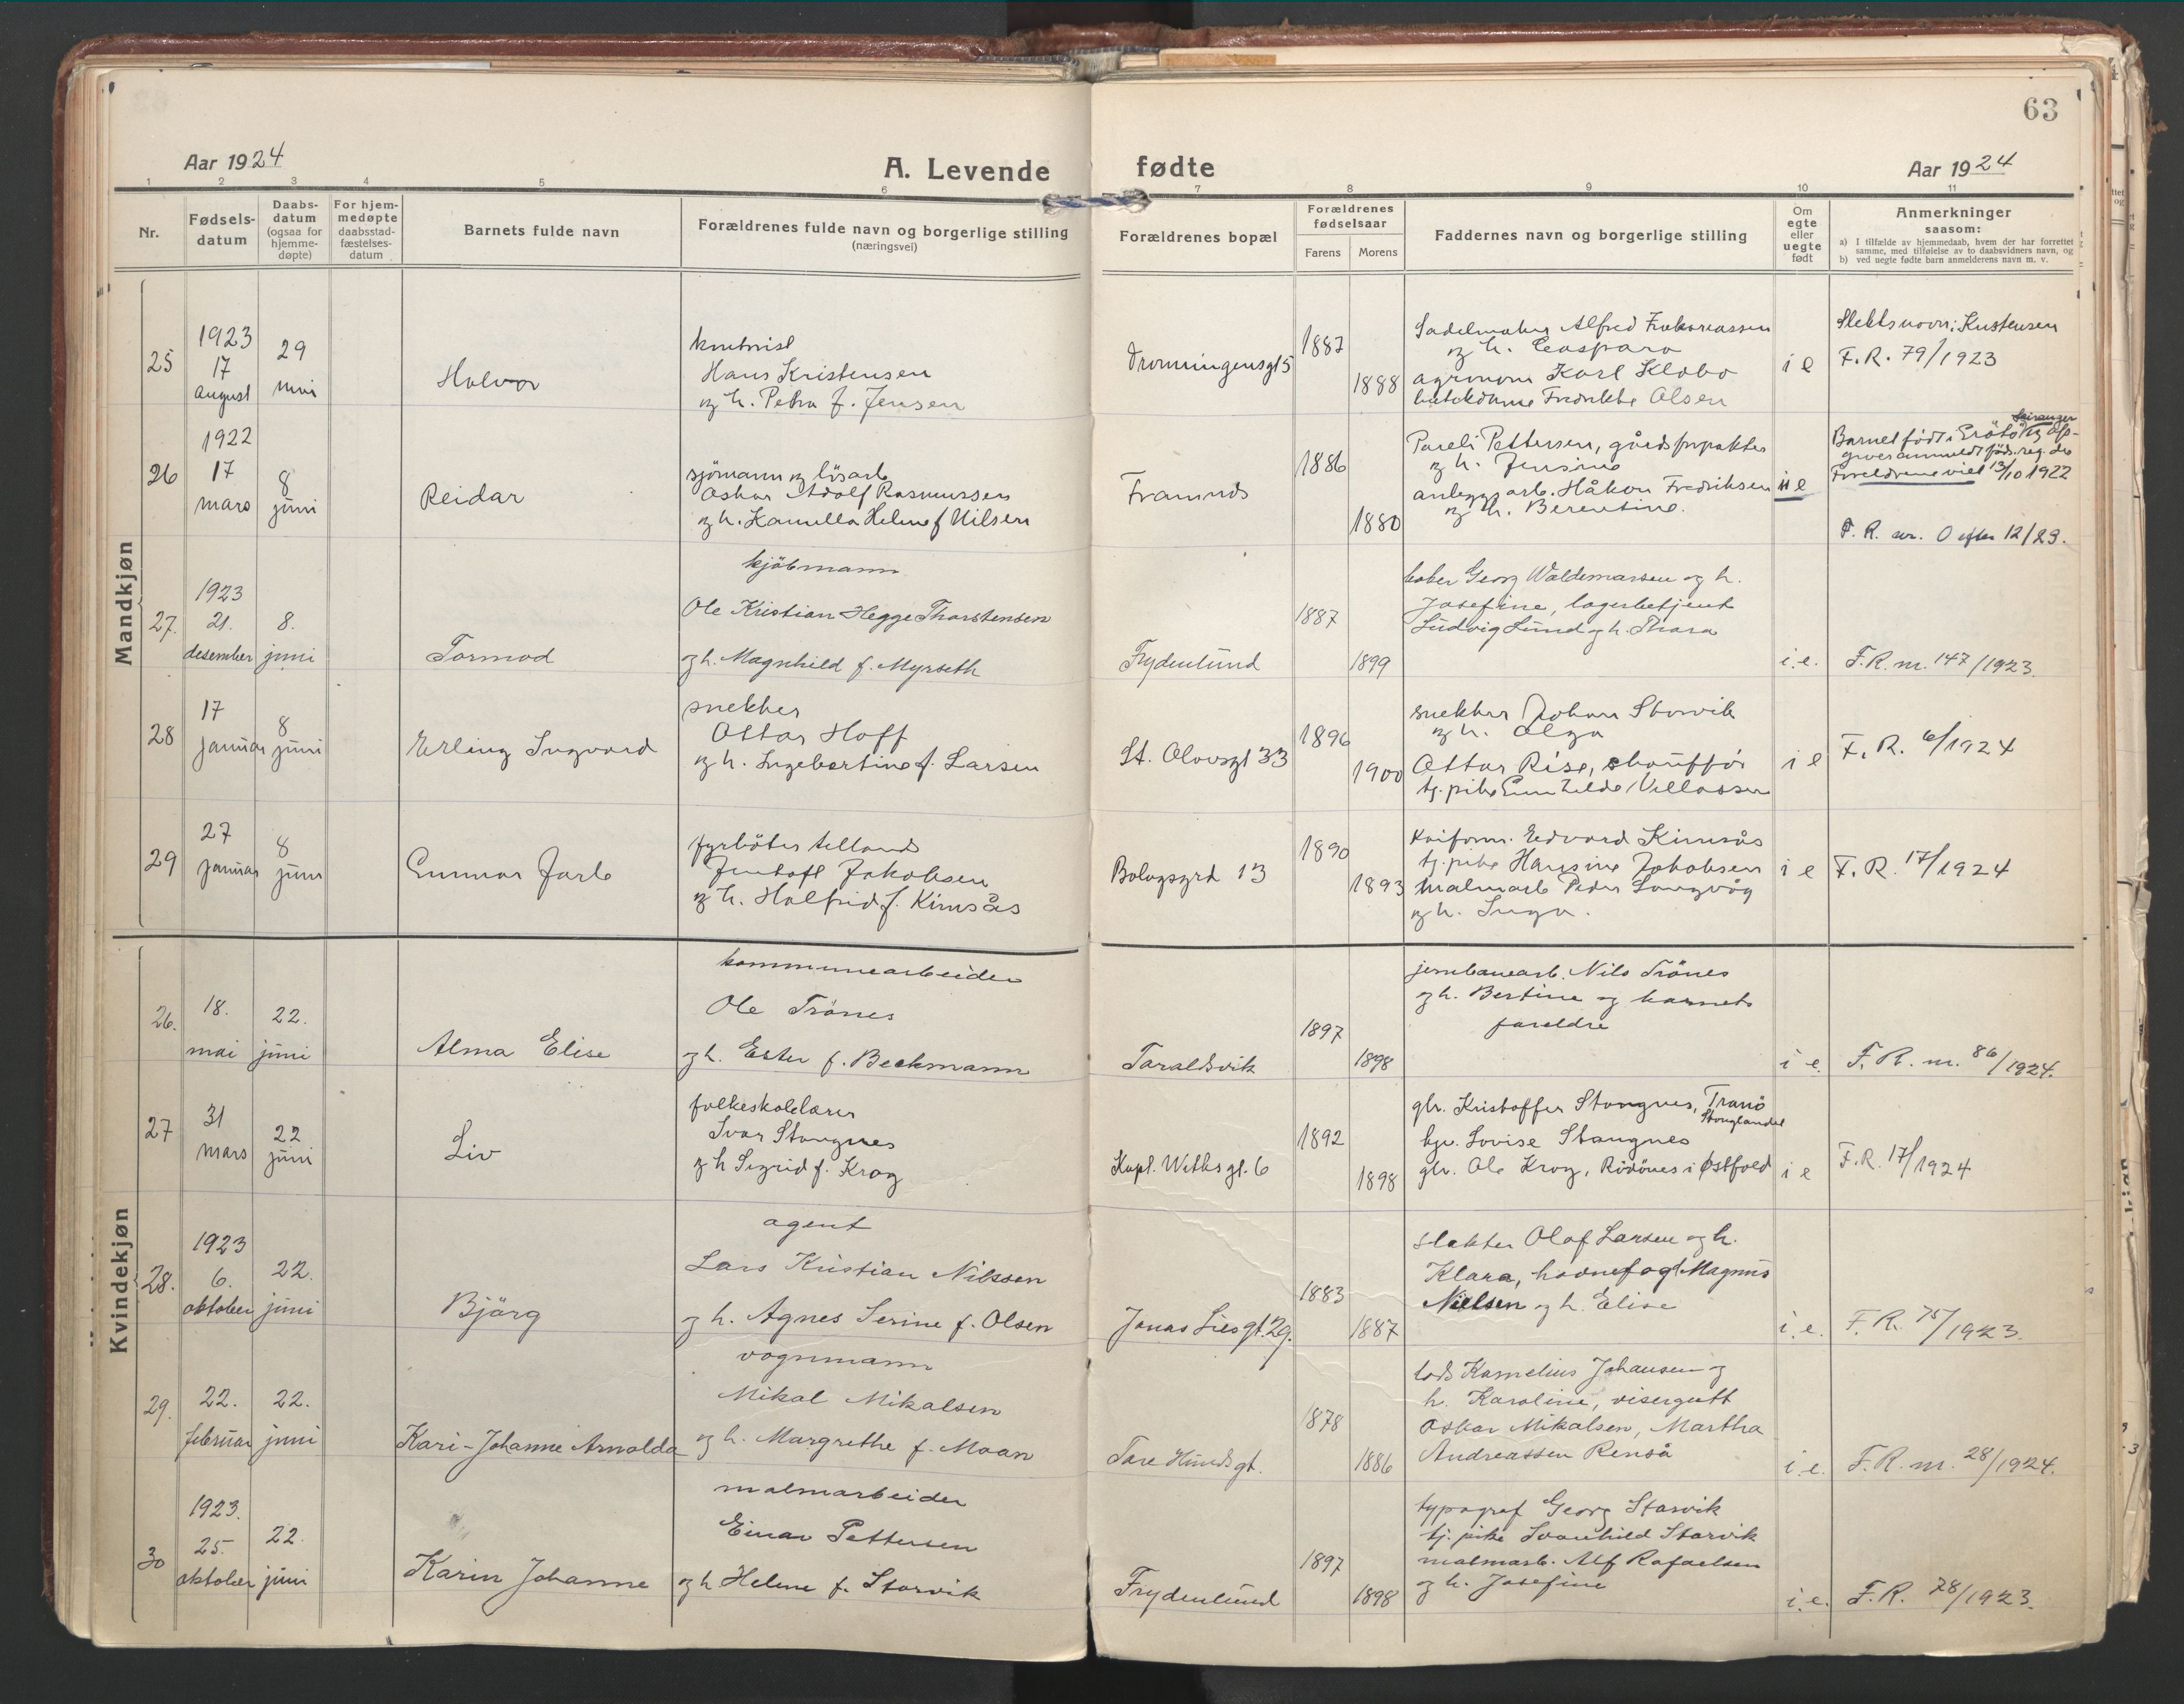 63
Aar 1924
A. Levende fødte
Aar 1924
1 2 3 4 5 6 7 8 9 10 11
Nr.
Fødsels-
datum
Daabs-
datum
(ogsaa for
hjemme-
døpte)
For hjem-
medøpte
daabsstad-
fæstelses-
datum
Barnets fulde navn
Forældrenes fulde navn og borgerlige stilling
(næringsvei)
Forældrenes bopæl
Forældrenes
fødselsaar
Farens Morens
Faddernes navn og borgerlige stilling
Om
egte
eller
uegte
født
Anmerkninger
saasom:
a) I tilfælde av hjemmedaab, hvem der har forrettet
samme, med tilføielse av to daabsvidners navn, og
b) ved uegte fødte barn anmelderens navn m. v.
Mandkjøn
25
1923
17
august
29
mai
Halvor
Hans Kristensen
og h. Petra f. Jensen
Dronningensgt 5
1887
1888
Sadelmaker Alfred
og h.
agronom Karl Klobo
Fredrikke Olsen
i e
Slektsnavn: Kristensen
F.R. 79/1923
26
1922
17
mars
8
juni
Reidar
sjömann og lösarb
Oskar Adolf Rasmussen
og h. Kamilla Helene f Nilsen
Framnes
1886
1880
Pareli Pettersen, gårdsforpakter
og h. Jensine
anleggsarb. Håkon Fredriksen
og h. Berentine.
Barnet födt i
Foreldrene viet 13/10 1922
F. R. 0 efter 12/23.
27.
1923
21.
desember
8.
juni
Tormod
kjöbmann
Ole Kristian Hegge Thorstensen
og h. Magnhild f. Myrseth
Frydenlund
1887
1899
Georg Waldemarsen og h.
Josefine, lagerbetjent
Ludvig Lund og h. Thora
i. e.
F. R. nr. 147/1923.
28
17
januar
8
juni
Erling Ingvard
snekker
Ottar Hoff
og h. Ingebertine f. Larsen
St. Olavsgt 33
1896
1900
snekker Johan Storvik
og h. Olga
Ottar Rise, skaufför
tj. pike
i e
F. R. 6/1924
29
27
januar
8
juni
Gunnar Jarle
fyrböter
Jentoft Jakobsen
og h. Halfrid f. Kimsås
Bolagsgrd 13
1890
1893
Edvard Kimsås
tj. pike Hansine Jakobsen
malmarb Peder Langvåg
og h. Inga.
i e
F. R. 17/1924
Kvindekjøn
26.
18.
mai
22.
juni
Alma Elise
kommunearbeider
Ole Trönes
og h. Ester f. Beckmann
Taraldsvik
1897
1898
jernbanearb. Nils Trönes
og h. Bertine og barnets
foreldre
i e.
F. R. nr. 86/1924.
27
31
mars
22
juni
Liv
folkeskolelærer
Ivar Stangnes
og h Sigrid f. Krog
Kapt. Wethsgt. 6
1892
1898
gbr. Kristoffer Stangnes, Tranö
Stonglandet
Lovise Stangnes
gbr. Ole Krog, Rödönes i Østfold
i e
F.R. 17/1924
28.
1923
6.
oktober
22.
juni
Bjärg
agent
Lars Kristian Nilssen
og h. Agnes Serine f. Olsen
Jonas Liesgt. 29.
1883
1887
slakter Olaf Larsen og h.
Klara, havnefogd Magnus
Nielsen og h. Elise
i. e.
F. R. 75/1923.
29.
22.
februar
22.
juni
Kari-Johanne Arnolda
vognmann
Mikal Mikalsen
og h. Margrethe f. Moan
Tore Hundsgt.
1878
1886
lods Kornelius Johansen og
h. Karoline, visergutt
Oskar Mikalsen, Martha
Andreassen Renså
i. e.
F. R. nr. 28/1924.
30
1923.
25.
oktober
22.
juni
Karin Johanne
malmarbeider
Einar Pettersen
og h Helene f. Storvik
Frydenlund
1897
1898
typograf Georg Storvik
tj. pike Svanhild Storvik
malmarb. Alf Rafaelsen
og h. Josefine
i. e.
F. R. 78/1923.